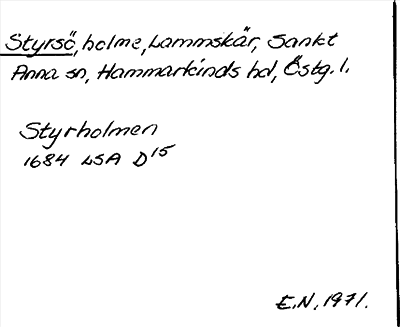 Styrsö, holme, Lammskär, Sankt
Anna sn, Hammarkinds hd, Östg. l.
Styrholmen
1684 LSA D15
E.N. 1971.